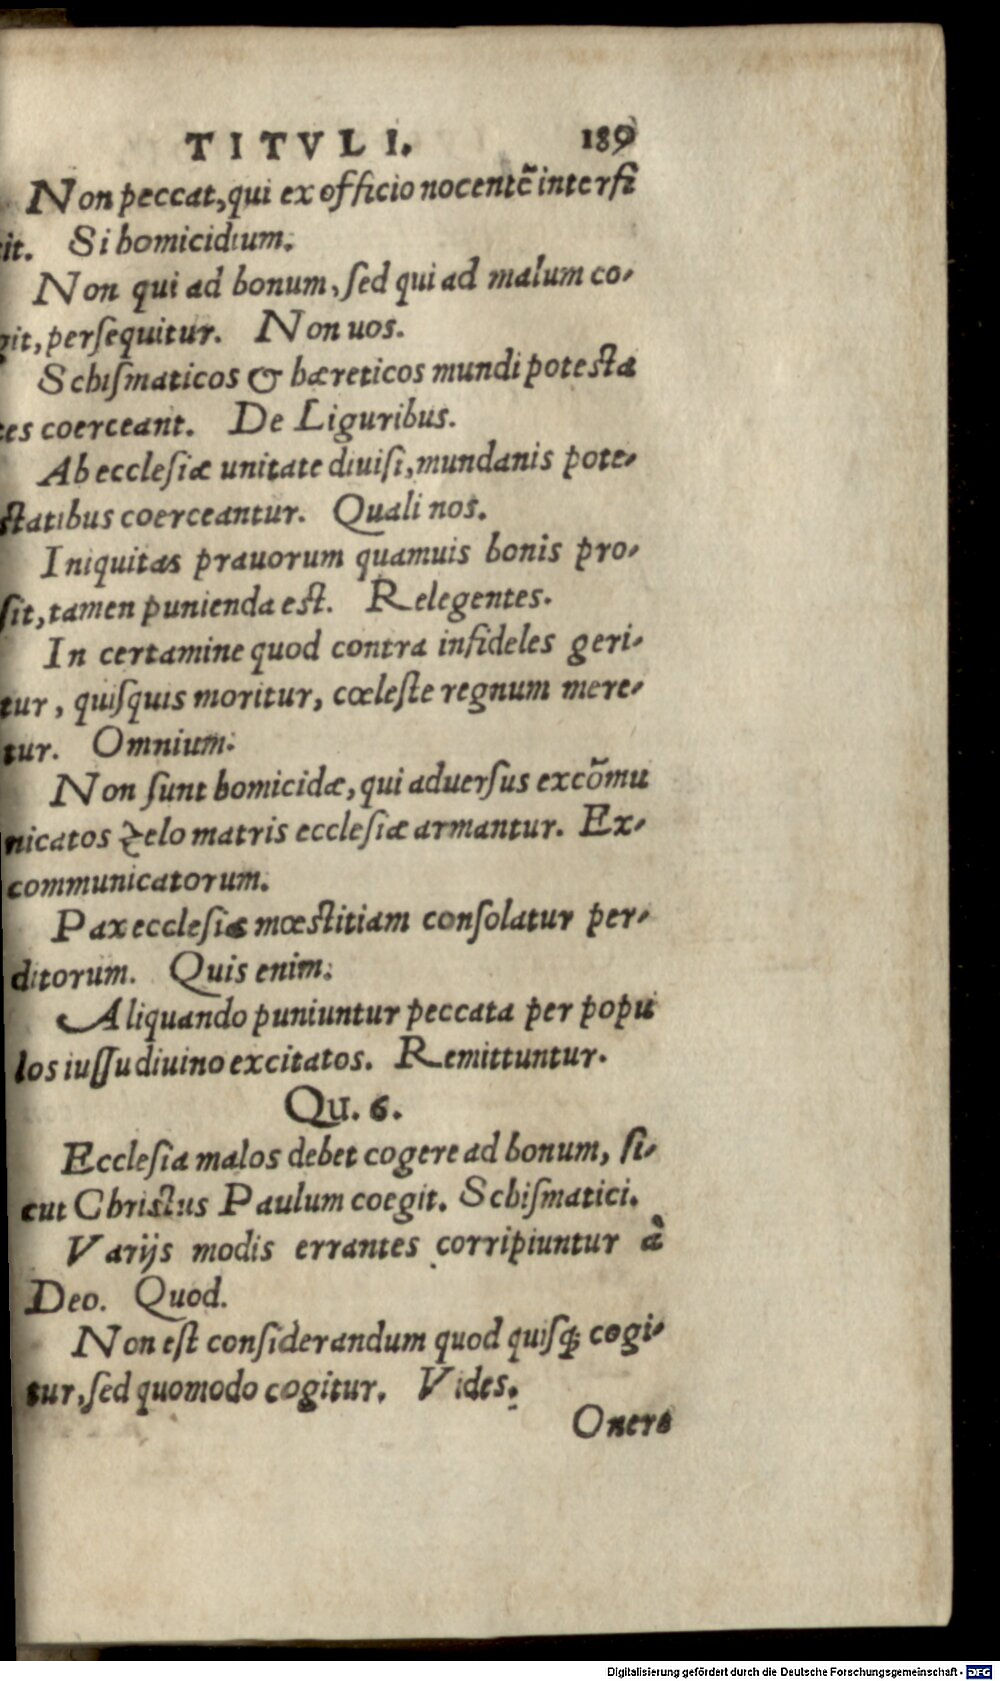 TITVLI. 189
Non peccat, qui ex officio nocentẽ interfi
cit. Si homicidium.
Non qui ad bonum, sed qui ad malum co-
git, persequitur. Non uos.
Schismaticos & hæreticos mundi potesta
tes coerceant. De Liguribus.
Ab ecclesiæ unitate diuisi, mundanis pote-
statibus coerceantur. Quali nos.
Iniquitas prauorum quamuis bonis pro-
sit, tamen punienda est. Relegentes.
In certamine quod contra infideles geri-
tur, quisquis moritur, cœleste regnum mere-
tur. Omnium.
Non sunt homicidæ, qui aduersus excõmu
nicatos zelo matris ecclesiæ armantur. Ex-
communicatorum.
Pax ecclesiæ mœstitiam consolatur per-
ditorum. Quis enim.
Aliquando puniuntur peccata per popu
los iussu diuino excitatos. Remittuntur.
Qu. 6.
Ecclesia malos debet cogere ad bonum, si-
cut Christus Paulum coegit. Schismatici.
Varijs modis errantes corripiuntur à
Deo. Quod.
Non est considerandum quod quisq; cogi-
tur, sed quomodo cogitur. Vides.
Onera
Digitalisierung gefördert durch die Deutsche Forschungsgemeinschaft - DFG